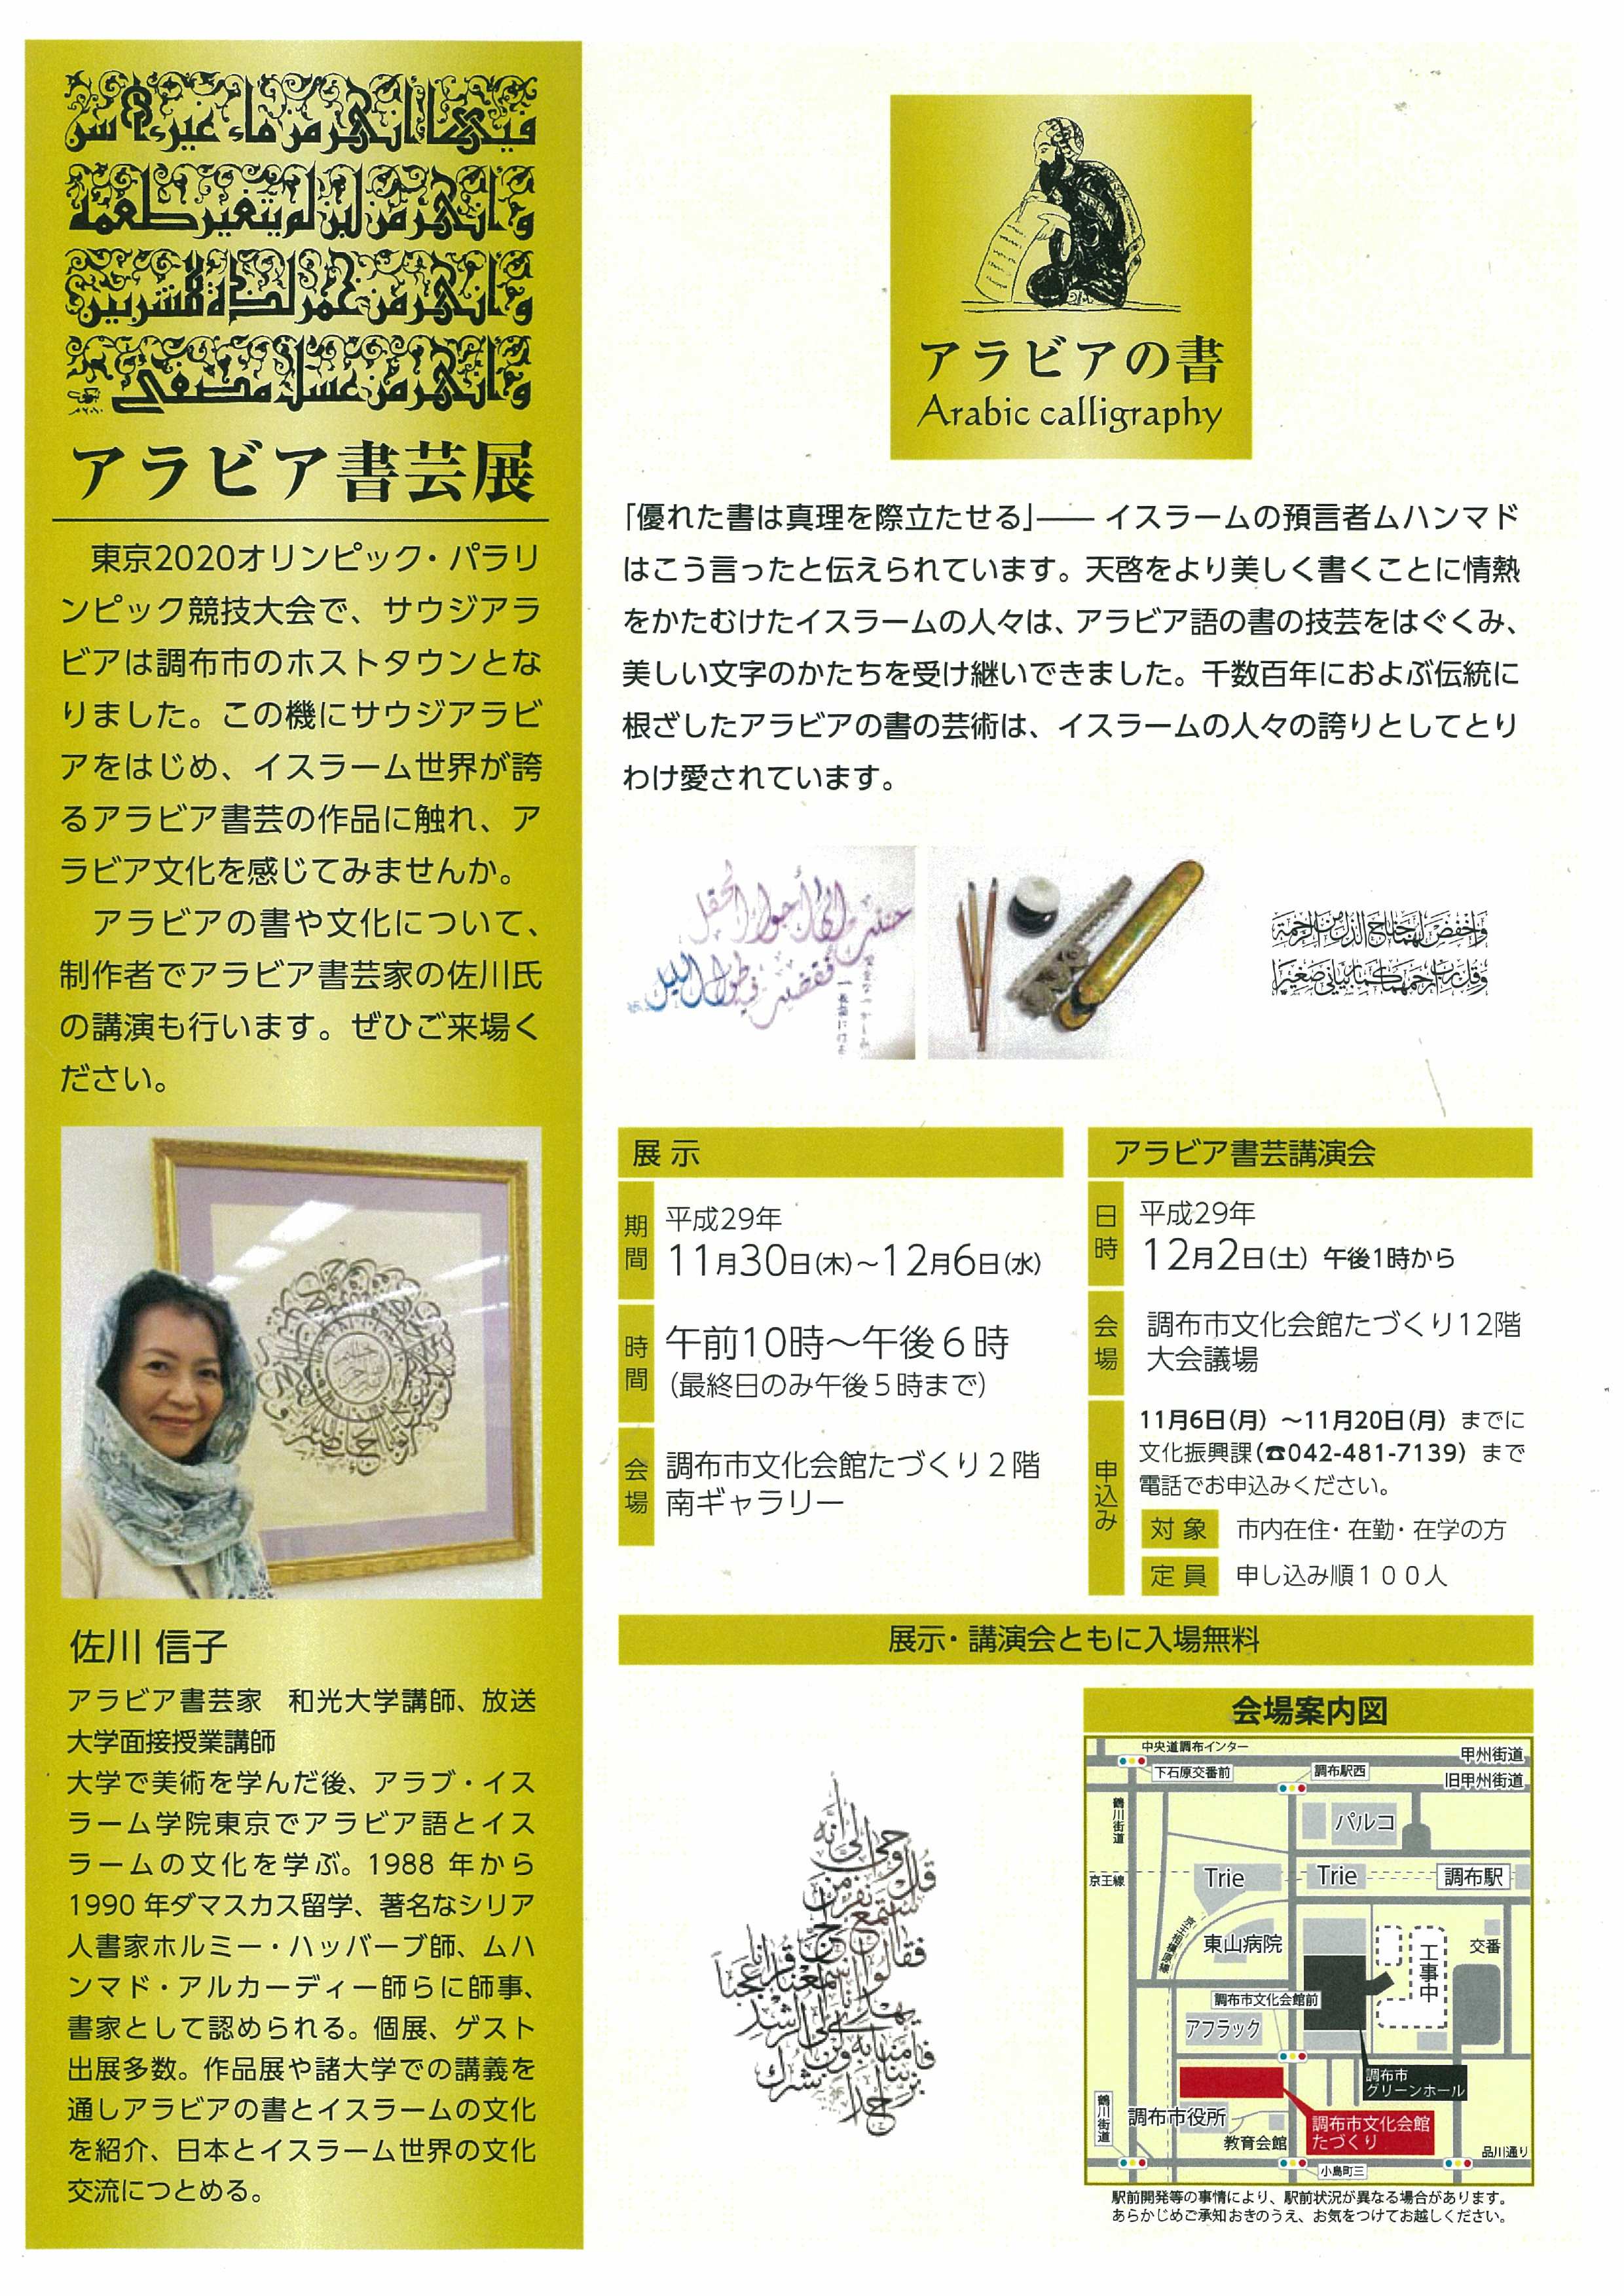 فيها أنهر من ماء غير ءاسن
وأنهر من لبن لم يتغير طعمه
وأنهر من خمر لذة للشربين
وأنهر من عسل مصفى
アラビア書芸展
東京2020オリンピック・パラリ
ンピック競技大会で、サウジアラ
ビアは調布市のホストタウンとな
りました。この機にサウジアラビ
アをはじめ、イスラーム世界が誇
るアラビア書芸の作品に触れ、ア
ラビア文化を感じてみませんか。
アラビアの書や文化について、
制作者でアラビア書芸家の佐川氏
の講演も行います。ぜひご来場く
ださい。
佐川 信子
アラビア書芸家　和光大学講師、放送
大学面接授業講師
大学で美術を学んだ後、アラブ・イス
ラーム学院東京でアラビア語とイス
ラームの文化を学ぶ。1988 年から
1990 年ダマスカス留学、著名なシリア
人書家ホルミー・ハッバーブ師、ムハ
ンマド・アルカーディー師らに師事、
書家として認められる。個展、ゲスト
出展多数。作品展や諸大学での講義を
通しアラビアの書とイスラームの文化
を紹介、日本とイスラーム世界の文化
交流につとめる。
アラビアの書
Arabic calligraphy
「優れた書は真理を際立たせる」―― イスラームの預言者ムハンマド
はこう言ったと伝えられています。天啓をより美しく書くことに情熱
をかたむけたイスラームの人々は、アラビア語の書の技芸をはぐくみ、
美しい文字のかたちを受け継いできました。千数百年におよぶ伝統に
根ざしたアラビアの書の芸術は、イスラームの人々の誇りとしてとり
わけ愛されています。
واخفض لهما جناح الذل من الرحمة
وقل رب ارحمهما كما ربياني صغيرا
展 示
期間
平成29年
11月30日(木)～12月6日(水)
時間
午前10時～午後６時
（最終日のみ午後５時まで）
会場
調布市文化会館たづくり２階
南ギャラリー
アラビア書芸講演会
日時
平成29年
12月2日(土) 午後1時から
会場
調布市文化会館たづくり12階
大会議場
申込み
11月6日(月) ～11月20日(月) までに
文化振興課(☎042-481-7139) まで
電話でお申込みください。
対 象　市内在住・在勤・在学の方
定 員　申し込み順１００人
展示・講演会ともに入場無料
قل أوحي إلي أنه
استمع نفر من
الجن
فقالوا إنا سمعنا قرآنا عجبا
يهدي إلى الرشد
فآمنا به ولن نشرك
بربنا أحدا
会場案内図
中央道調布インター
甲州街道
下石原交番前
調布駅西
旧甲州街道
鶴川街道
パルコ
京王線
Trie
Trie
調布駅
京王相模原線
東山病院
工事中
交番
調布市文化会館前
アフラック
調布市
グリーンホール
鶴川街道
調布市役所
教育会館
調布市文化会館
たづくり
品川通り
小島町三
駅前開発等の事情により、駅前状況が異なる場合があります。
あらかじめご承知おきのうえ、お気をつけてお越しください。